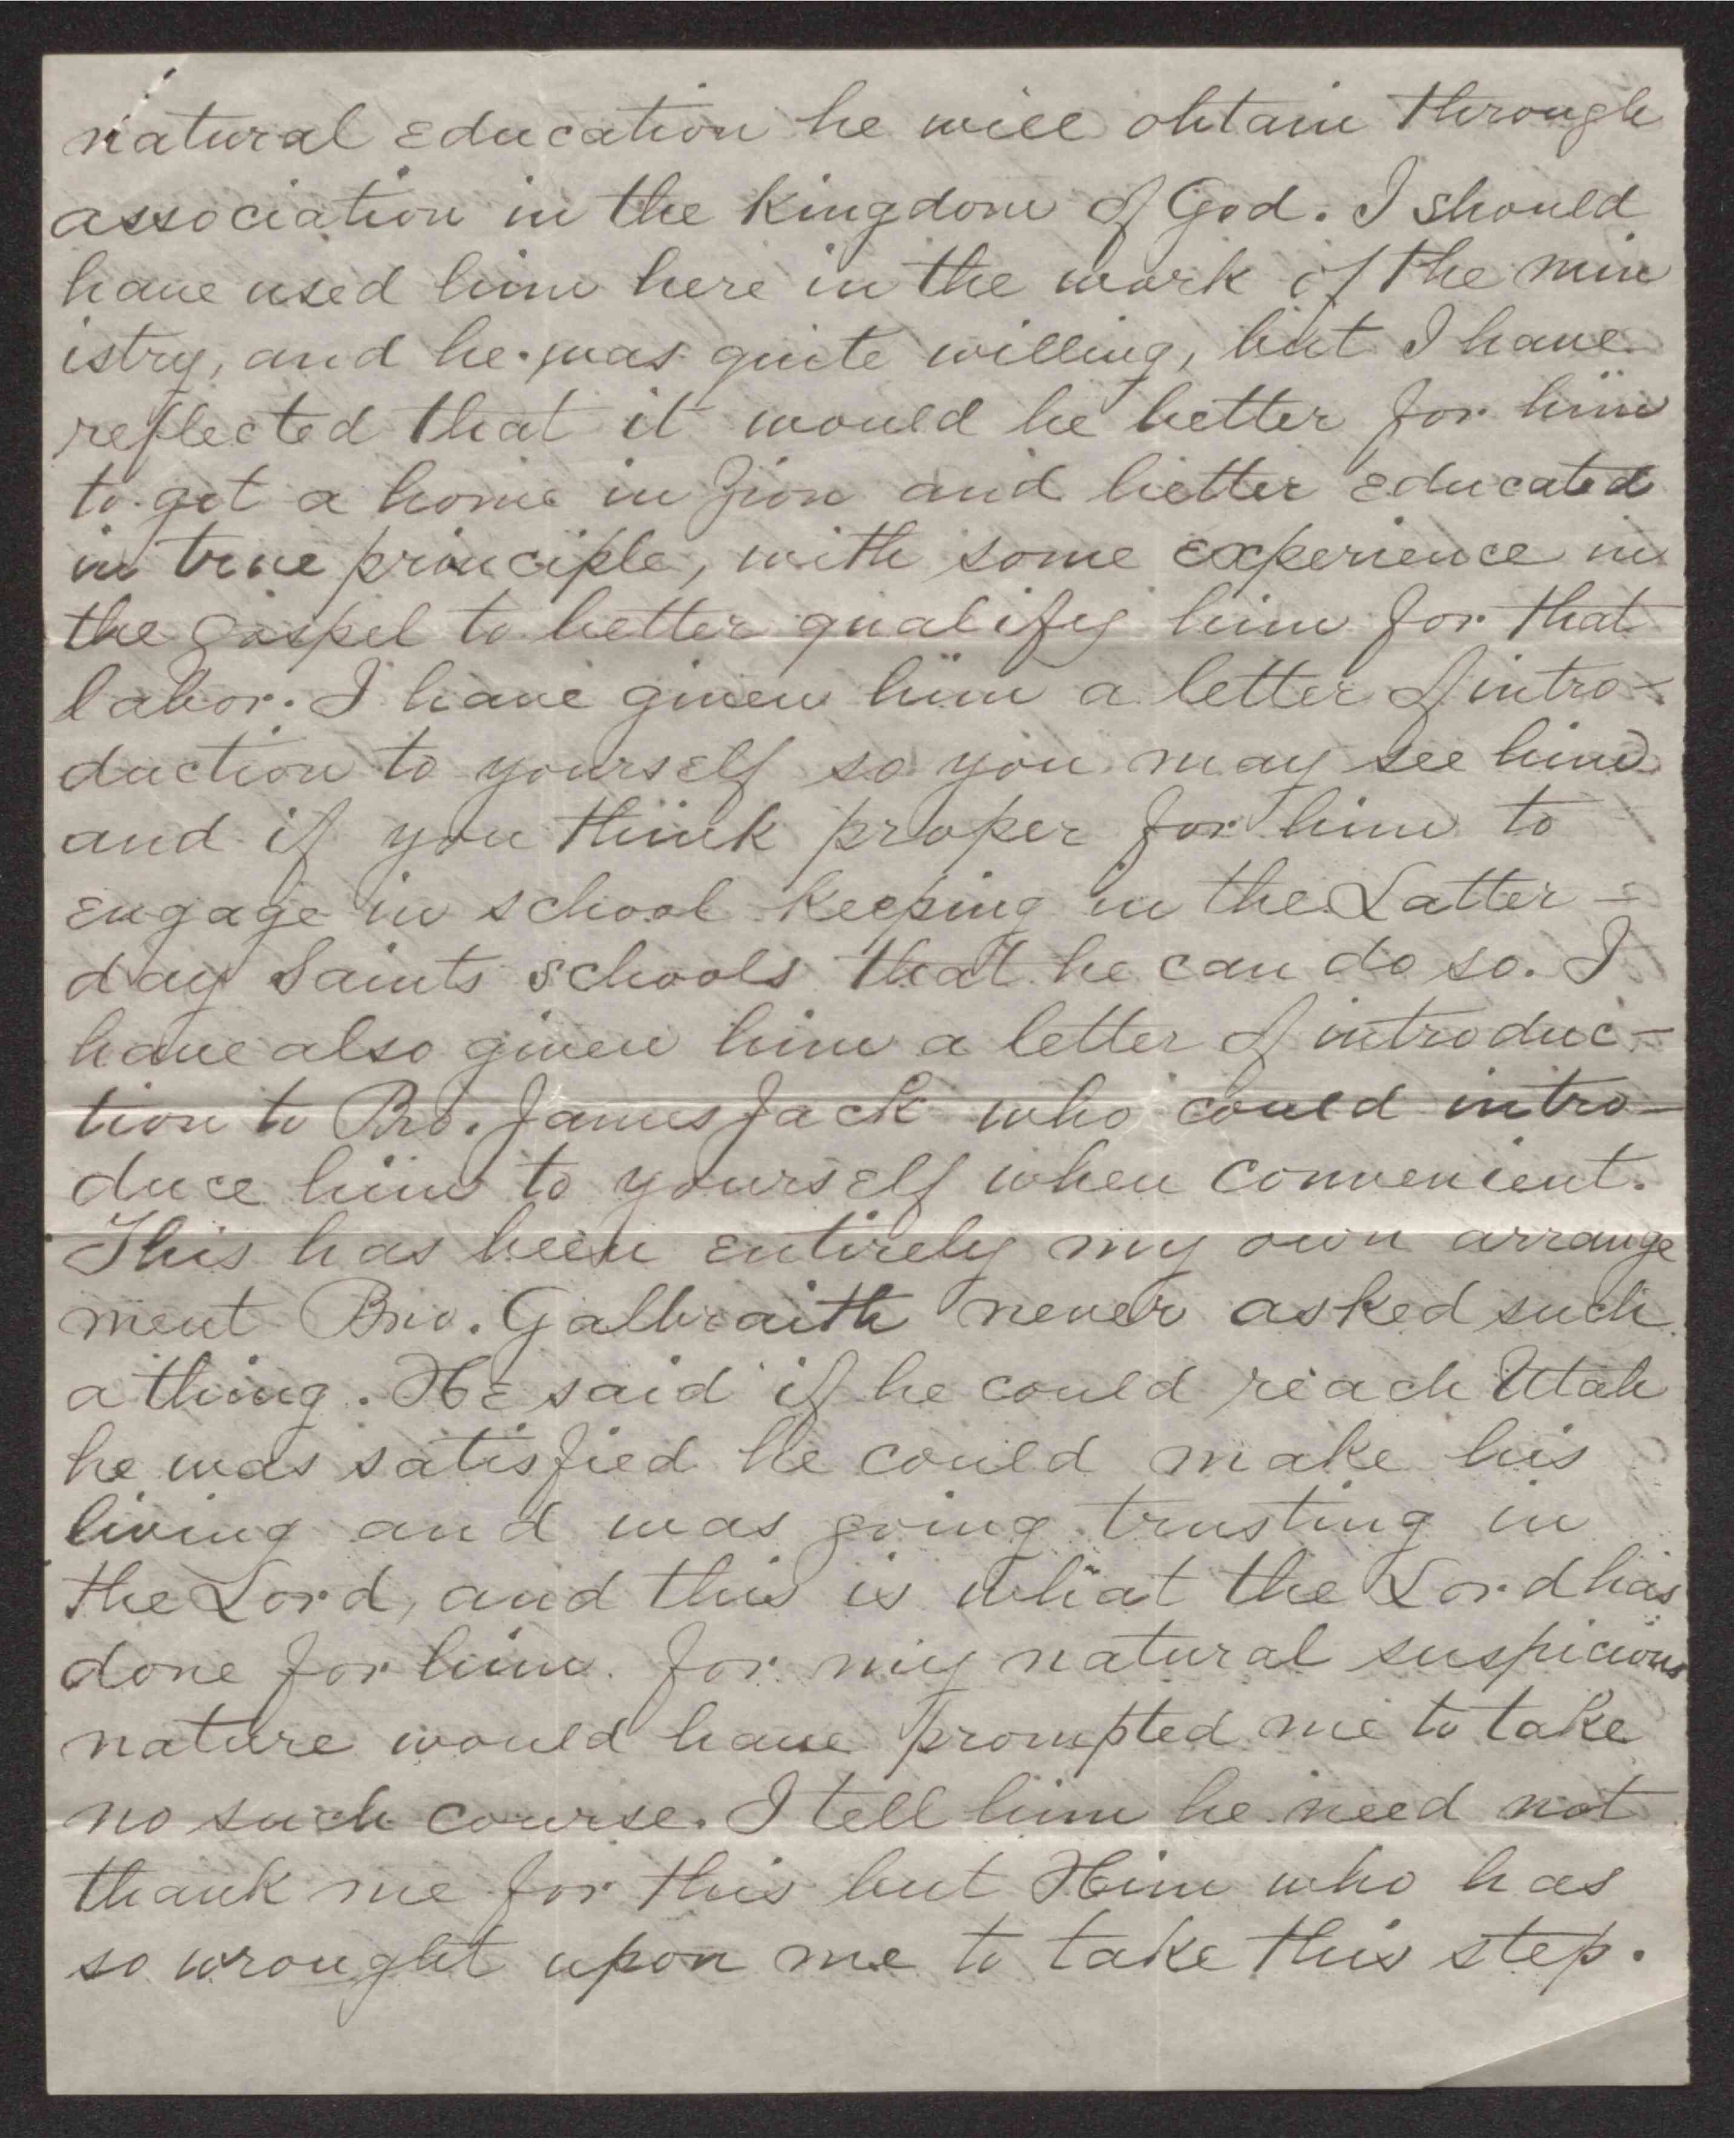 natural education he will obtain through
association in the Kingdom of God. I should
have used him here in the work of the min
istry, and he was quite willing, but I have
reflected that it would be better for him
to get a home in Zion and better educated
in true principle, with some experience in
the Gospel to better qualify him for that
labor. I have given him a letter of intro-
duction to yourself so you may see him
and if you think proper for him to
engage in school keeping in the Latter-
day Saints schools that he can do so. I
have also given him a letter of introduc-
tion to Bro. James Jack who could intro-
duce him to yourself when convenient.
This has been entirely my own arrange
ment Bro. Galbraith never asked such
a thing. He said if he could reach Utah
he was satisfied he could make his
living and was going trusting in
the Lord, and this is what the Lord has
done for him. for my natural suspicious
nature would have prompted me to take
no such course. I tell him he need not
thank me for this but Him who has
so wrought upon me to take this step.